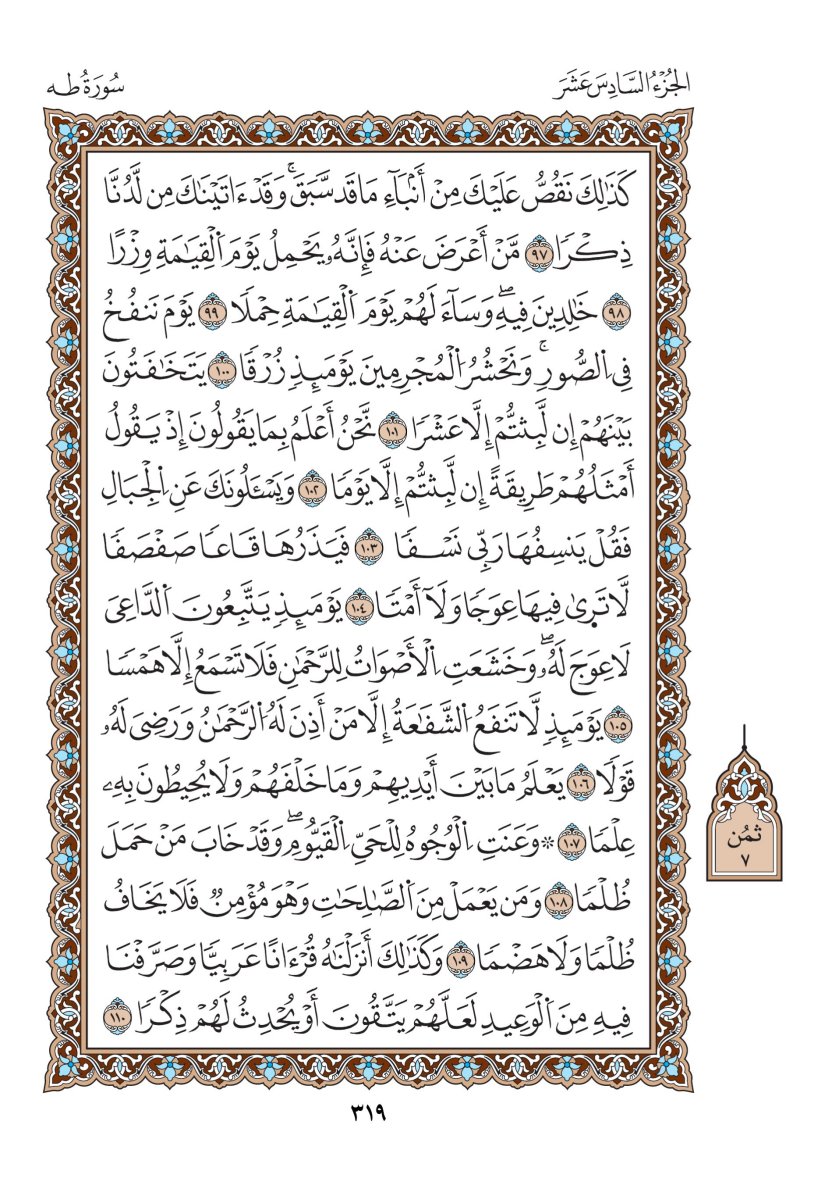 الجُزْءُ السَّادِسَ عَشَرَ
سُورَةُ طه
كَذَٰلِكَ نَقُصُّ عَلَيْكَ مِنْ أَنۢبَآءِ مَا قَد سَّبَقَۚ وَقَدْ ءَاتَيْنَٰكَ مِن لَّدُنَّا
ذِكْرٗا ٩٧ مَّنْ أَعْرَضَ عَنْهُ فَإِنَّهُۥ يَحْمِلُ يَوْمَ اَ۬لْقِيَٰمَةِ وِزْرًا
٩٨ خَٰلِدِينَ فِيهِۖ وَسَآءَ لَهُمْ يَوْمَ اَ۬لْقِيَٰمَةِ حِمْلٗا ٩٩ يَوْمَ نَنفُخُ
فِي اِ۬لصُّورِۚ وَنَحْشُرُ اُ۬لْمُجْرِمِينَ يَوْمَئِذٖ زُرْقٗا ١٠٠ يَتَخَٰفَتُونَ
بَيْنَهُمْ إِن لَّبِثتُّمْ إِلَّا عَشْرٗا ١٠١ نَّحْنُ أَعْلَمُ بِمَا يَقُولُونَ إِذْ يَقُولُ
أَمْثَلُهُمْ طَرِيقَةً إِن لَّبِثتُّمْ إِلَّا يَوْمٗا ١٠٢ وَيَسْـَٔلُونَكَ عَنِ اِ۬لْجِبَالِ
فَقُلْ يَنسِفُهَا رَبِّي نَسْفٗا ١٠٣ فَيَذَرُهَا قَاعٗا صَفْصَفٗا
لَّا تَر۪يٰ فِيهَا عِوَجٗا وَلَآ أَمْتٗا ١٠٤ يَوْمَئِذٖ يَتَّبِعُونَ اَ۬لدَّاعِيَ
لَا عِوَجَ لَهُۥۖ وَخَشَعَتِ اِ۬لْأَصْوَاتُ لِلرَّحْمَٰنِ فَلَا تَسْمَعُ إِلَّا هَمْسٗا
١٠٥ يَوْمَئِذٖ لَّا تَنفَعُ اُ۬لشَّفَٰعَةُ إِلَّا مَنْ أَذِنَ لَهُ اُ۬لرَّحْمَٰنُ وَرَضِيَ لَهُۥ
قَوْلٗا ١٠٦ يَعْلَمُ مَا بَيْنَ أَيْدِيهِمْ وَمَا خَلْفَهُمْ وَلَا يُحِيطُونَ بِهِۦ
عِلْمٗا ١٠٧ ۞ وَعَنَتِ اِ۬لْوُجُوهُ لِلْحَيِّ اِ۬لْقَيُّومِۖ وَقَدْ خَابَ مَنْ حَمَلَ
ظُلْمٗا ١٠٨ وَمَن يَعْمَلْ مِنَ اَ۬لصَّٰلِحَٰتِ وَهْوَ مُؤْمِنٞ فَلَا يَخَافُ
ظُلْمٗا وَلَا هَضْمٗا ١٠٩ وَكَذَٰلِكَ أَنزَلْنَٰهُ قُرْءَانًا عَرَبِيّٗا وَصَرَّفْنَا
فِيهِ مِنَ اَ۬لْوَعِيدِ لَعَلَّهُمْ يَتَّقُونَ أَوْ يُحْدِثُ لَهُمْ ذِكْرٗا ١١٠
ثُمُن
٧
٣١٩